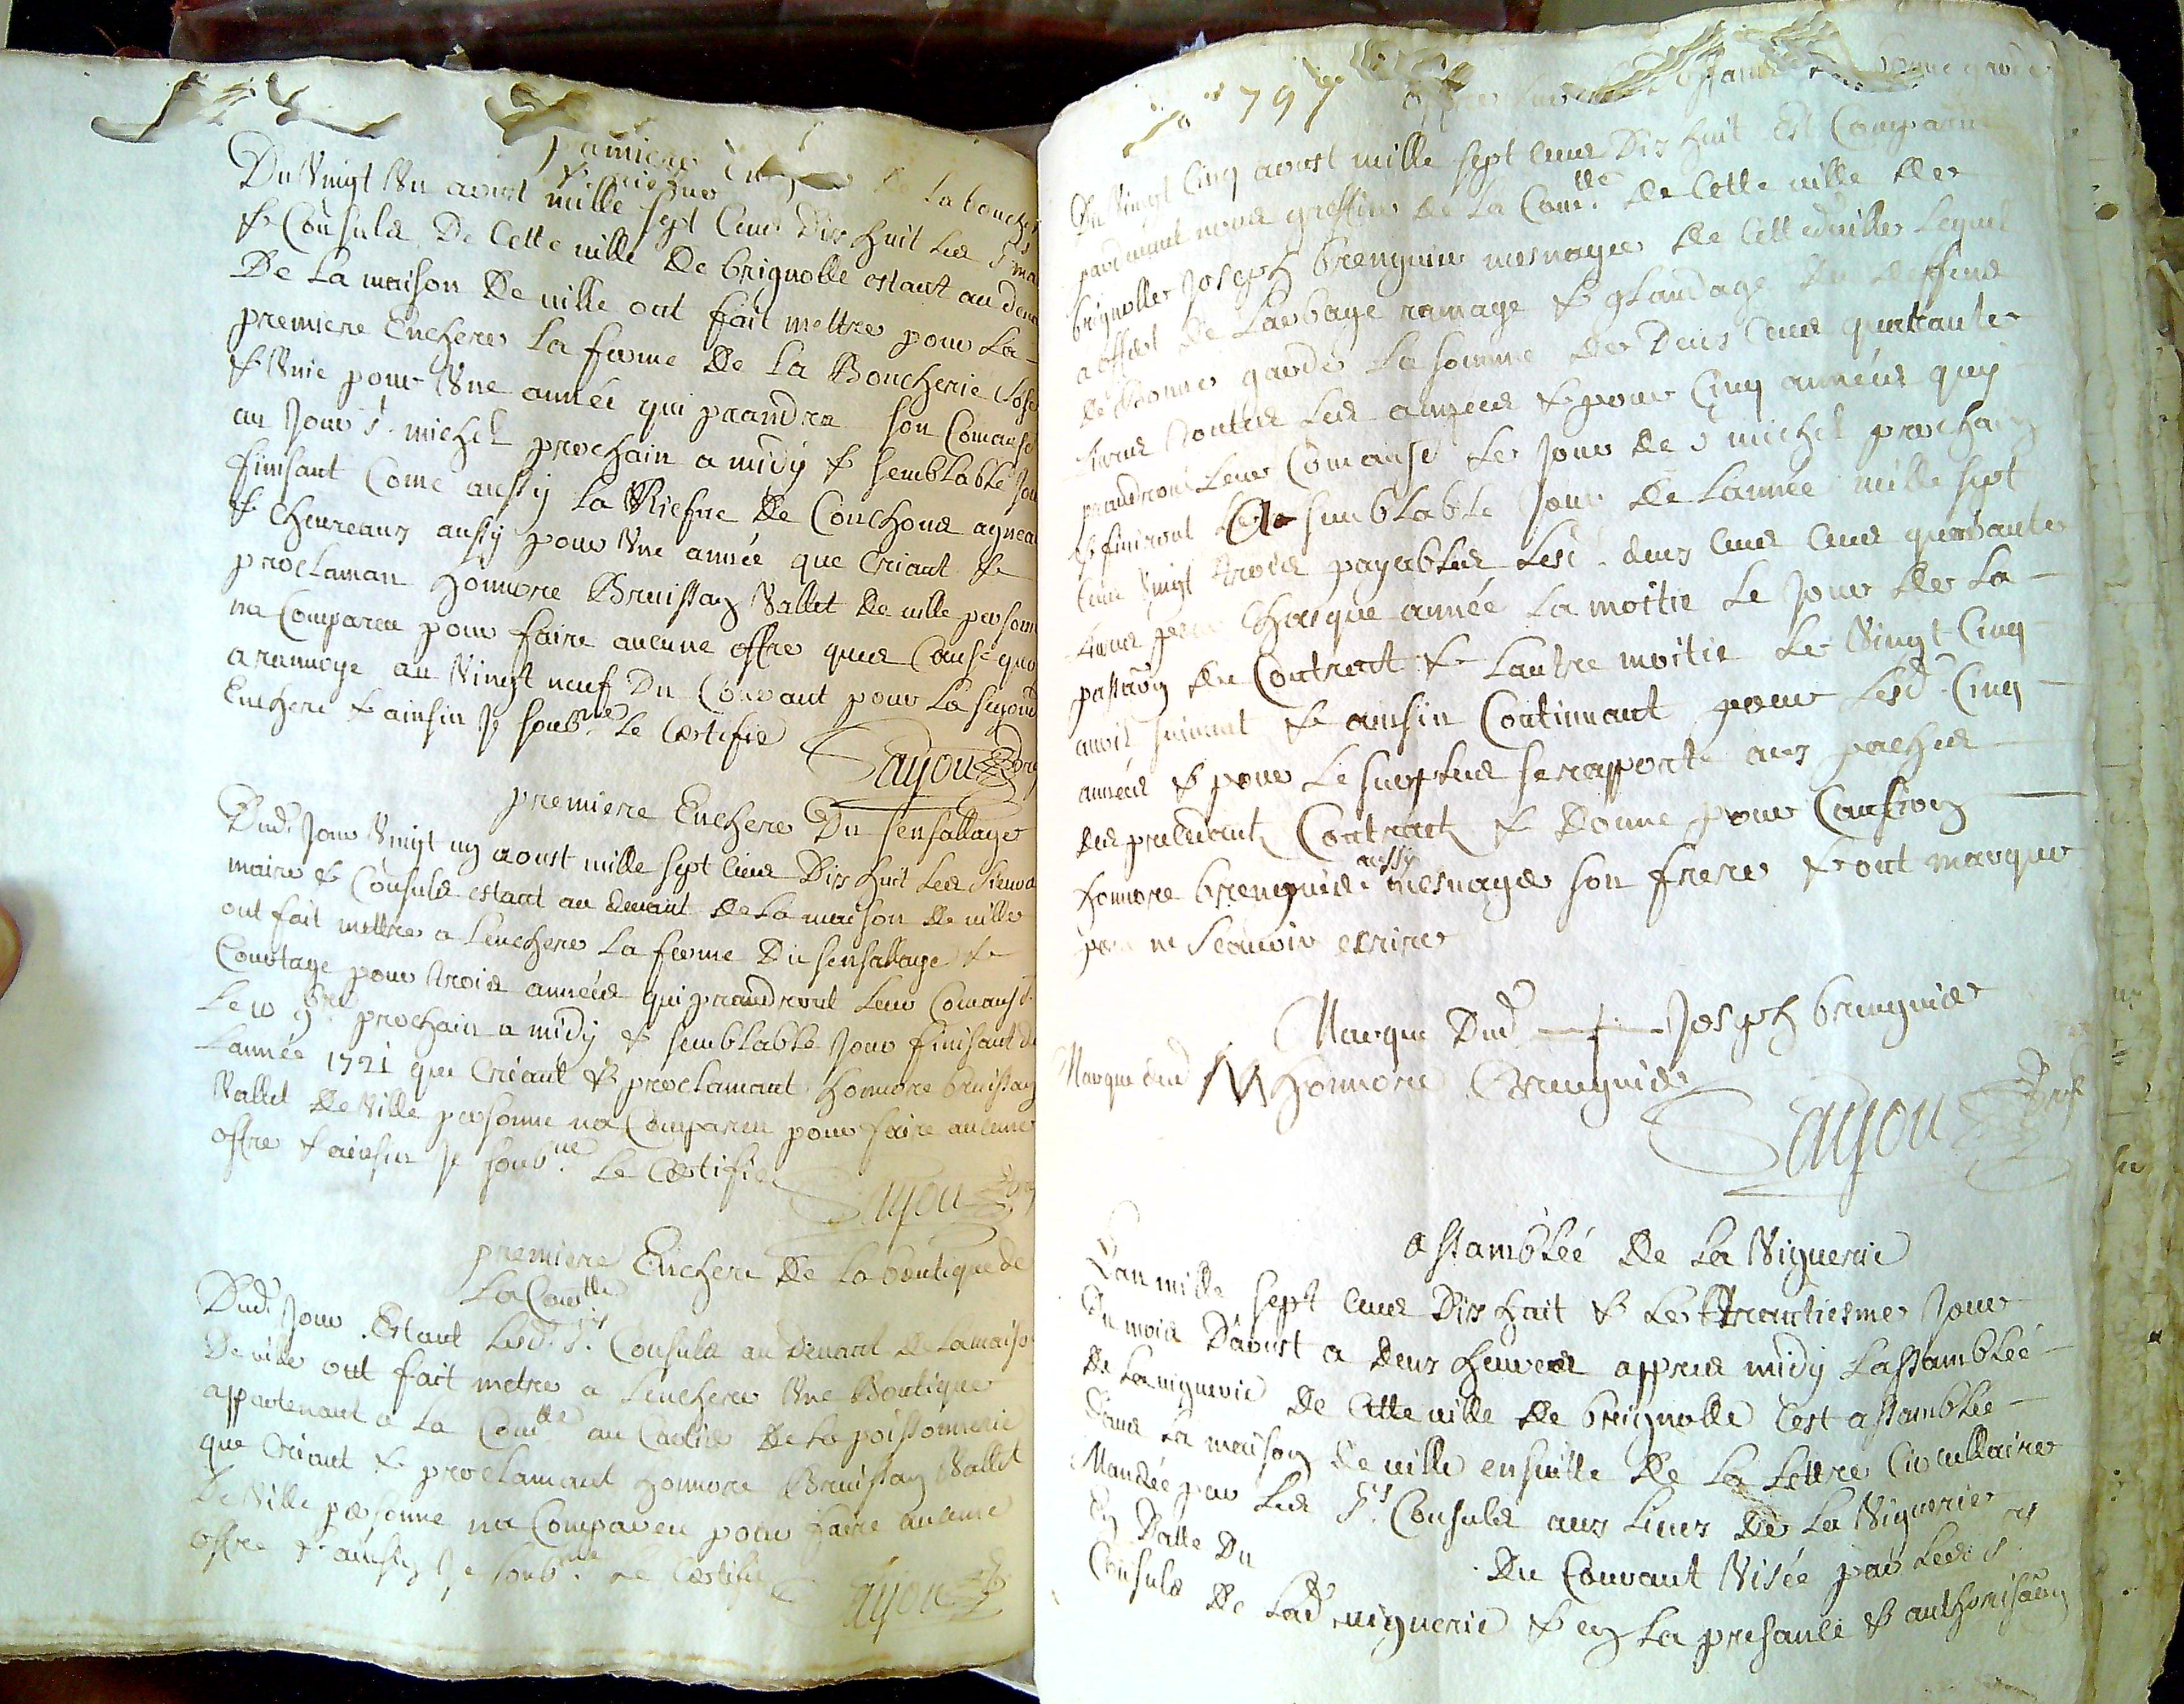 premiere de la bouche
& riefne
Du Vingt Vn aoust mille sept Cens Dix huit Les Srs ma
& Consuls De Cette ville De brignolle estant au deva
De La maison De ville ont fait mettre pour La
premiere Enchere La ferme De La Boucherie
& Vnie pour Vne année qui prandra son Comansé
au Jour St. michel prochain a midy & semblable Jou
finisant Come aussy La Riefne De Couchons agnea
& Chevreaux aussy pour Vne année que Criant &
proclaman Honnore Bruissan Vallet De ville person
na Compareu pour faire aucune offre
a ranvoye au Vingt neuf Du Couvant pour La segond
Enchere & ainsin Je soubne. Le Certifie
Sayou
premiere Enchere Du sensallage
Dud. Jour Vingt un aoust mille sept Cens Dix huit Les Sieurs
maire & Consuls estant au devant De La maison De ville
ont fait mettre a Lenchere La ferme Du sensallage &
Courtage pour trois années qui prandront Leur Comansé.
Le 10 9bre prochain a midy & semblable Jour finisant de
Lannée 1721 que Criant & proclamant Honnore bruissan
Vallet De Ville personne na Compareu pour faire aucune
offre & ainsin Je soubne. Le Certifie
Sayou
premiere Enchere De La boutique de
La Comtte
Dud. Jour Estant Lesd. Srs. Consuls au Devant De La maiso
De ville ont fait metre a Lenchere Vne Boutique
appartenant a La Comtte au Cartier De La poissonnerie
que Criant & proclamant Honnore Bruissan Vallet
De Ville personne na Compareu pour faire aucune
offre & ainsin Je soubne. Le Certifie
Sayou
797
offre bonne garde
Du Vingt Cinq aoust mille sept Cens Dix huit Est Comparu
pardevant nous greffier De La Comtte. De Cette ville De
brignolle Joseph brenguier mesnager De Cette ville Lequel
a offert De Larbage ramage & glandage Du Deffens
De bonne garde La somme De Deux Cens quarante
Livres toutes Les années & pour Cinq années quy
prandront Leur Comansé Le Jour De St michel prochain
& finiront a semblable Jour De Lannée mille sept
Cens Vingt trois payables Lesd. deux Cens Cens quarante
Livres pour Chasque année La moitie Le Jour De La
passaõn du Contract & Lautre moitie Le Vingt Cinq
avril suivant & ainsin Continuant pour Lesd. Cinq
années & pour Le surplus se rapporte aux paches
des precedants Contracts & Donne pour Caution
Honnore brenguier aussy mesnager son frere & ont marque
pour ne Scauoir escrire
Marque Dud Joseph brenguier
Marque dud Honnore Brenguier
Sayou
assamblée De La Viguerie
Lan mille sept Cens Dix huit & Le Trantiesme Jour
Du mois Daoust a deux heures appres midy Lassamblée
De La viguerie De Cette ville De brignolle Cest assamblée
Dans La maison De ville ensuitte De La Lettre Circullaire
Mandée par Les Srs. Consuls aux Lieux De La Viguerie
En Datte Du Du Couvant Visée par Les Srs
Consuls De Lad viguerie & en La presance & authorisaõn